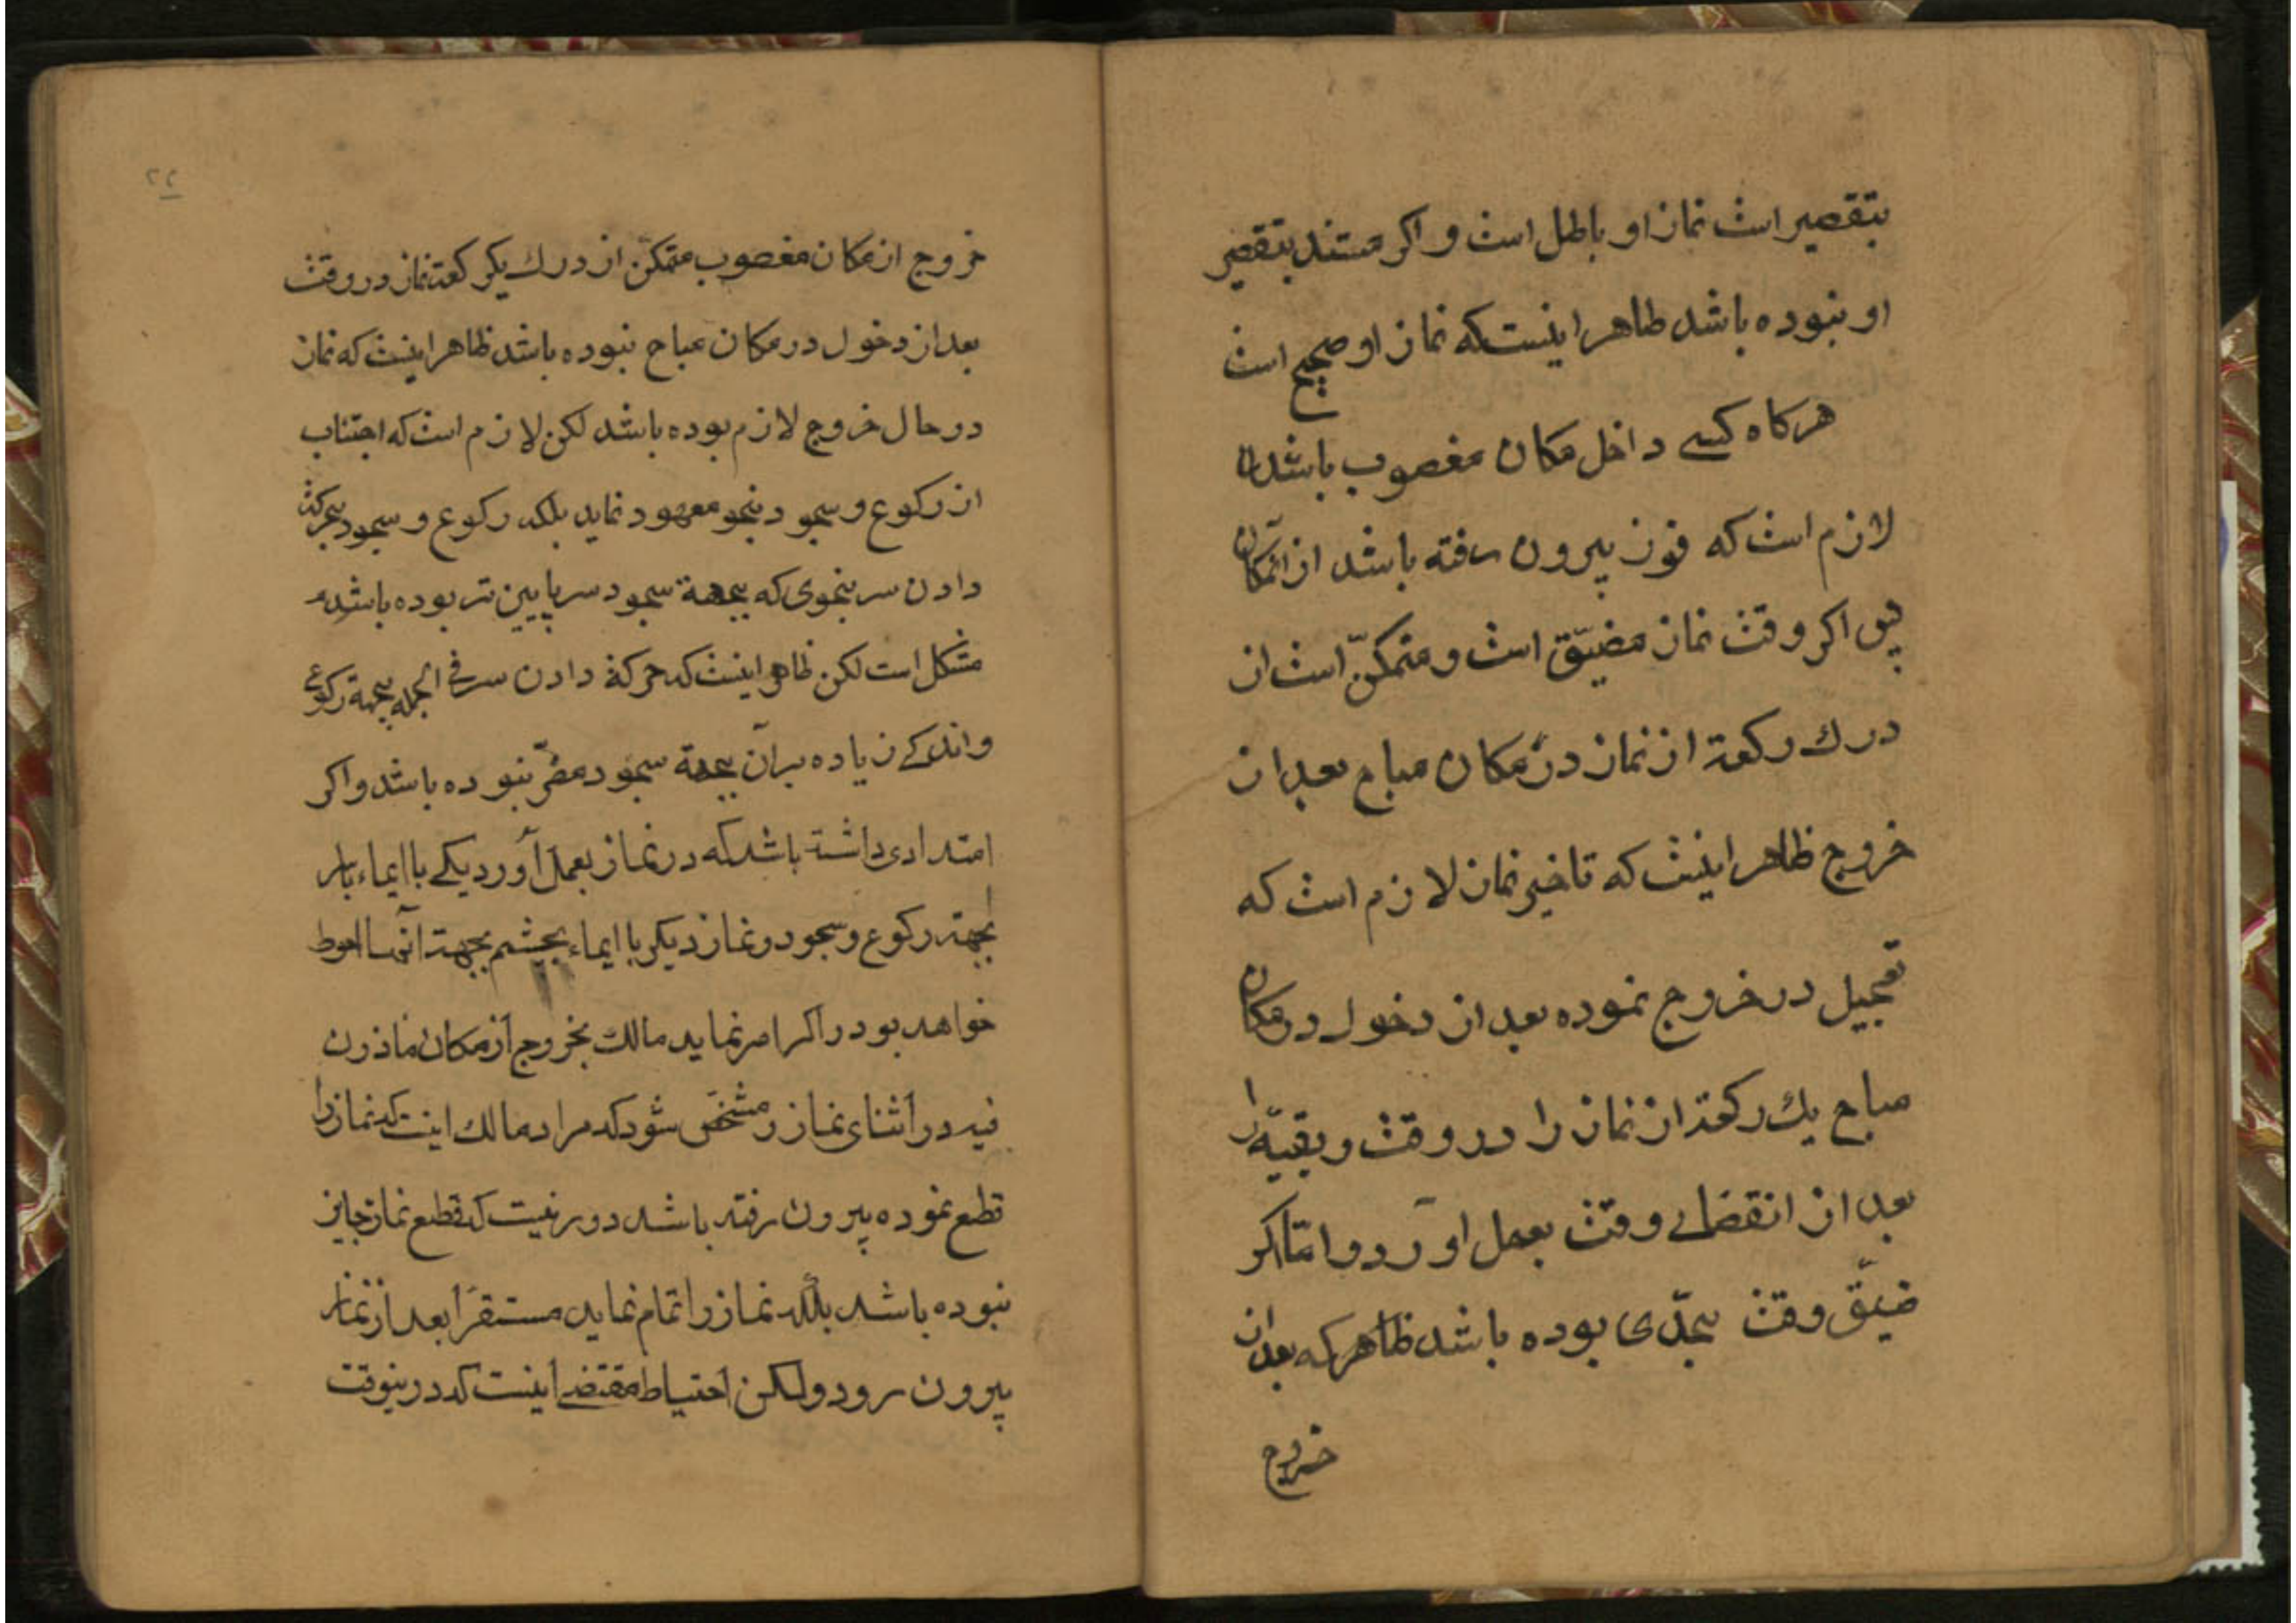 بتقصیر است نماز او باطل است و اکر مستند بتقصیر
او نبوده باشد ظاهر اینست که نماز او صحیح است
هرکاه کسی داخل مکان مغصوب باشد
لازم است که فورا بیرون رفته باشد از آنمکان
پس اکر وقت نماز مضیّق است و متمکنّ است از
درك رکعة از نماز در مکان مباح بعد از
خروج ظاهر اینست که تاخیر نماز لازم است که
تعجیل در خروج نموده بعد از دخول در مکان
مباح یك رکعة از نماز را در وقت و بقیّه را
بعد از انقضای وقت بعمل اورد و امّا اکر
ضیق وقت بحدّی بوده باشد ظاهر که بعد از
خروج
۲۲
خروج از مکان مغصوب متمکّن از درك یکرکعة نماز در وقت
بعد از دخول در مکان مباح نبوده باشد ظاهر اینست که نماز
در حال خروج لازم بوده باشد لکن لازم است که اجتناب
از رکوع و سجود بنحو معهود نماید بلکه رکوع و سجود بحرکت
دادن سر بنحوی که بجهة سجود سر پایین تر بوده باشد
مشکل است لکن ظاهر اینست که حرکة دادن سر فی الجمله بجهة رکوع
و اندکی زیاده بر آن بجهة سجود مضرّ نبوده باشد و اکر
امتدادی داشتة باشد که در نماز بعمل آورد یکی با ایماء بسر
بجهتة رکوع و سجود و نماز دیکر با ایماء بچشم بجهتة آنها احوط
خواهد بود و اکر امر نماید مالك بخروج از مکان ماذون
فیه در اثنای نماز و مشخص شود که مراد مالك اینست که نماز را
قطع نموده بیرون رفته باشد دور نیست که قطع نماز جایز
نبوده باشد بلکه نماز را تمام نماید مستقرا بعد از نماز
بیرون رود ولکن احتیاط مقتضی اینست که در ینوقت